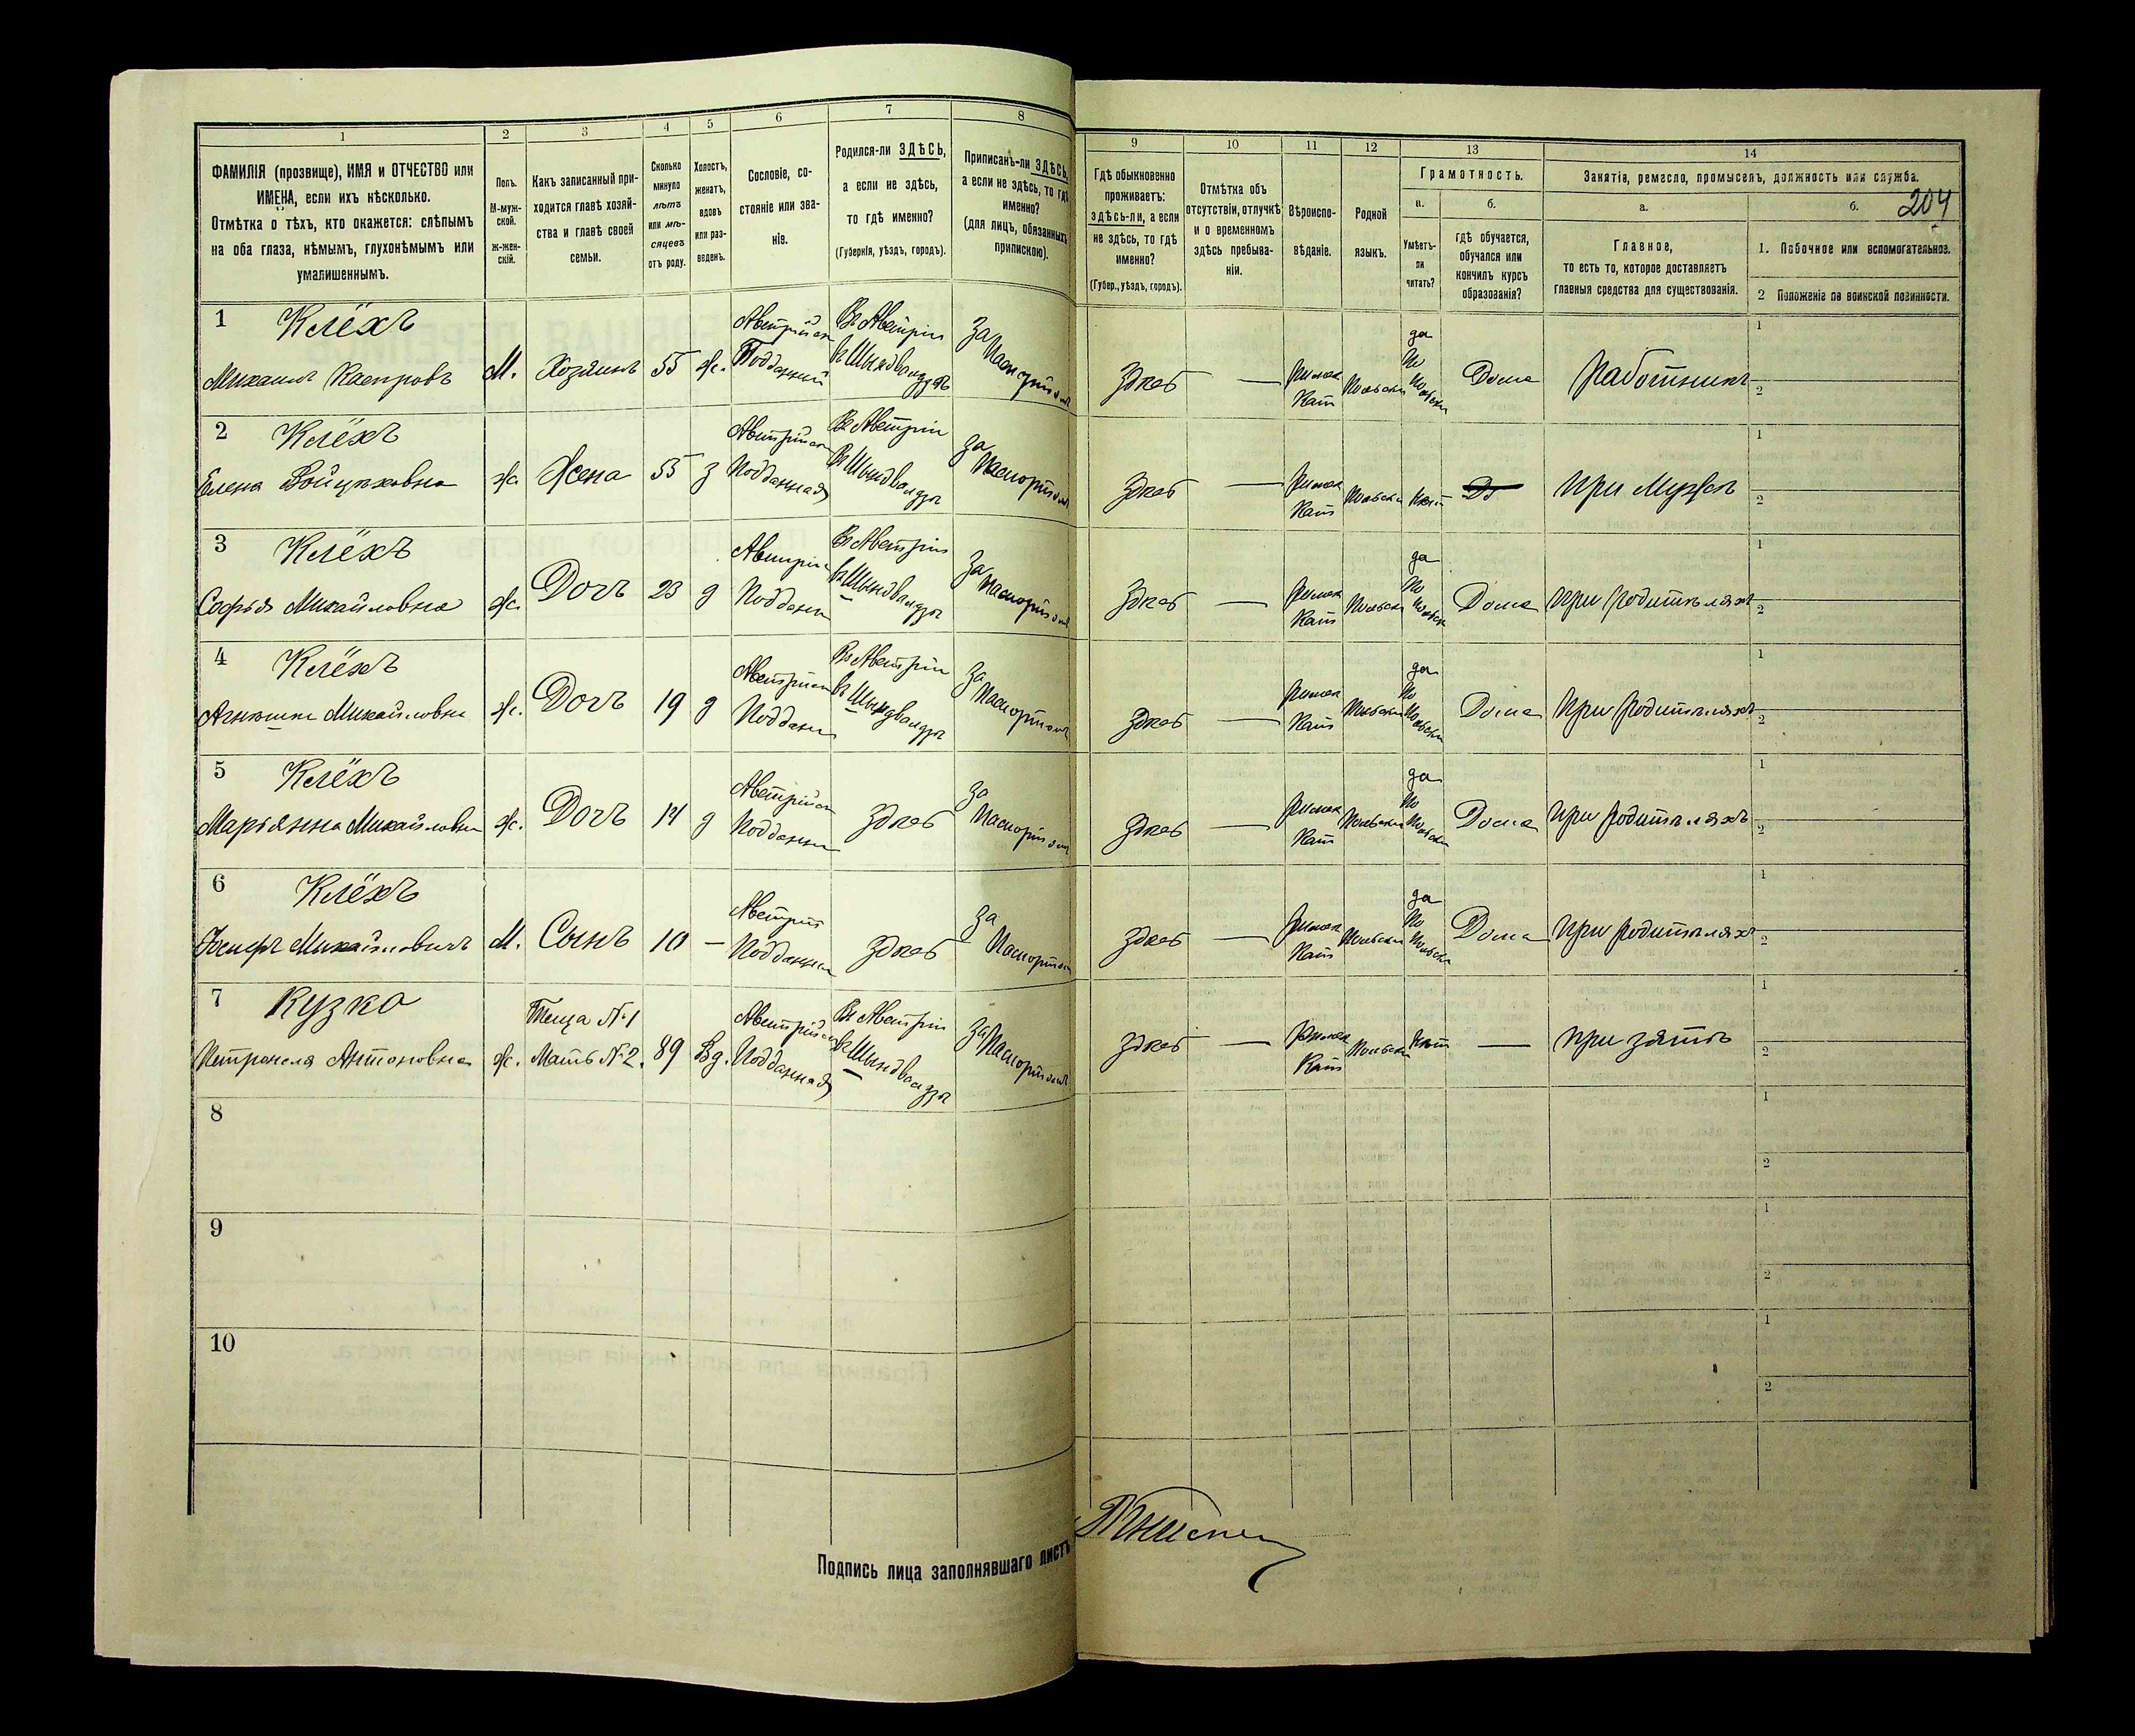 1
2
3
4
5
6
7
8
ФАМИЛІЯ (прозвище), ИМЯ и ОТЧЕСТВО или
ИМЕНА, если ихъ нѣсколько.
Отмѣтка о тѣхъ, кто окажется: слѣпымъ
на оба глаза, нѣмымъ, глухонѣмымъ или
умалишеннымъ.
Полъ.
М-муж-
ской.
ж-жен-
скій.
Какъ записанный при-
ходится главѣ хозяй-
ства и главѣ своей
семьи.
Сколько
минуло
лѣтъ
или мѣ-
сяцевъ
отъ роду.
Холостъ,
женатъ,
вдовъ
или раз-
веденъ.
Сословіе, со-
стояніе или зва-
ніе.
Родился-ли ЗДѢСЬ,
а если не здѣсь,
то гдѣ именно?
(Губернія, уѣздъ, городъ).
Приписанъ-ли ЗДѢСЬ,
а если не здѣсь, то гдѣ
именно?
(для лицъ, обязанныхъ
припискою).
9
10
11
12
13
14
Гдѣ обыкновенно
проживаетъ:
здѣсь-ли, а если
не здѣсь, то гдѣ
именно?
(Губер., уѣздъ, городъ).
Отмѣтка объ
отсутствіи, отлучкѣ
и о временномъ
здѣсь пребыва-
ніи.
Вѣроиспо-
вѣданіе.
Родной
языкъ.
Грамотность.
а.
б.
Умѣетъ-
ли
читать?
гдѣ обучается,
обучался или
кончилъ курсъ
образованія?
Занятія, ремесло, промыселъ, должность или служба.
204
а.
б.
Главное,
то есть то, которое доставляетъ
главныя средства для существованія.
1. Побочное или вспомогательное.
2 Положеніе по воинской повинности.
1 Клёхъ
Михаилъ Каспровъ
М.
Хозяинъ
55
ж.
Австрійск
Подданный
Въ Австріи
въ Шындвалдзѣ
За
Паспортомъ
Здѣсь
—
Римск
Кат
Польски
да
По
Польски
Дома
Работникъ
1
2
2 Клёхъ
Елена Войцѣховна
ж.
Жена
55
з
Австрійск
Подданная
Въ Австріи
въ Шындвалдзѣ
За
Паспортомъ
Здѣсь
—
Римск
Кат
Польски
Нѣт
При Мужѣ
1
2
3 Клёхъ
Софья Михайловна
ж.
Дочь
23
д
Австрій
Поддан
Въ Австріи
въ Шындвалдзѣ
За
Паспортомъ
Здѣсь
—
Римск
Кат
Польски
да
По
Польски
Дома
При родителяхъ
1
2
4 Клёхъ
Агнюшка Михайловна
ж.
Дочь
19
д
Австрійск
Поддан
Въ Австріи
въ Шындвалдзѣ
За
Паспортомъ
Здѣсь
—
Римск
Кат
Польски
да
По
Польски
Дома
При родителяхъ
1
2
5 Клёхъ
Марьянна Михайловна
ж.
Дочь
14
д
Австрійск
Поддан
Здѣсь
За
Паспортом
Здѣсь
—
Римск
Кат
Польски
да
По
Польски
Дома
При родителяхъ
1
2
6 Клёхъ
Михайловичъ
М.
Сынъ
10
—
Австрій
Поддан
Здѣсь
За
Паспортом
Здѣсь
—
Римск
Кат
Польски
да
По
Польски
Дома
При родителяхъ
1
2
7 Кузко
Петронеля Антоновна
ж.
Теща №1
Мать №2.
89
Вд.
Австрійск
Подданная
Въ Австріи
въ Шындвалдзѣ
За
Паспортомъ
Здѣсь
—
Римск
Кат
Польски
Нѣт
—
При зятѣ
1
2
8
1
2
9
1
2
10
1
2
Подпись лица заполнявшаго листъ